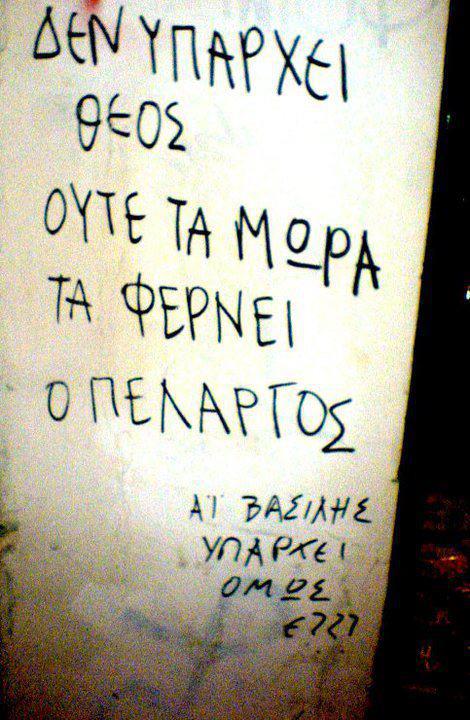 ΔΕΝ ΥΠΑΡΧΕΙ
ΘΕΟΣ
ΟΥΤΕ ΤΑ ΜΩΡΑ
ΤΑ ΦΕΡΝΕΙ
Ο ΠΕΛΑΡΓΟΣ
ΑΪ ΒΑΣΙΛΗΣ
ΥΠΑΡΧΕΙ
ΟΜΩΣ